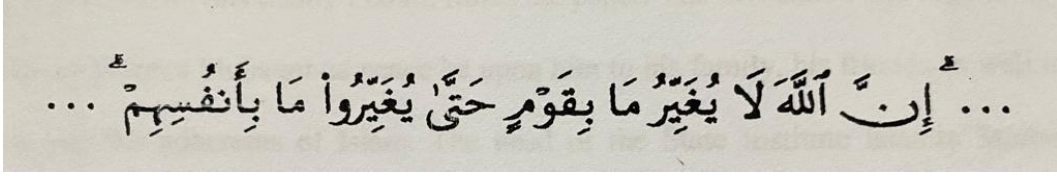 ... ۗ إِنَّ ٱللَّهَ لَا يُغَيِّرُ مَا بِقَوْمٍ حَتَّىٰ يُغَيِّرُوا۟ مَا بِأَنفُسِهِمْ ۗ ...